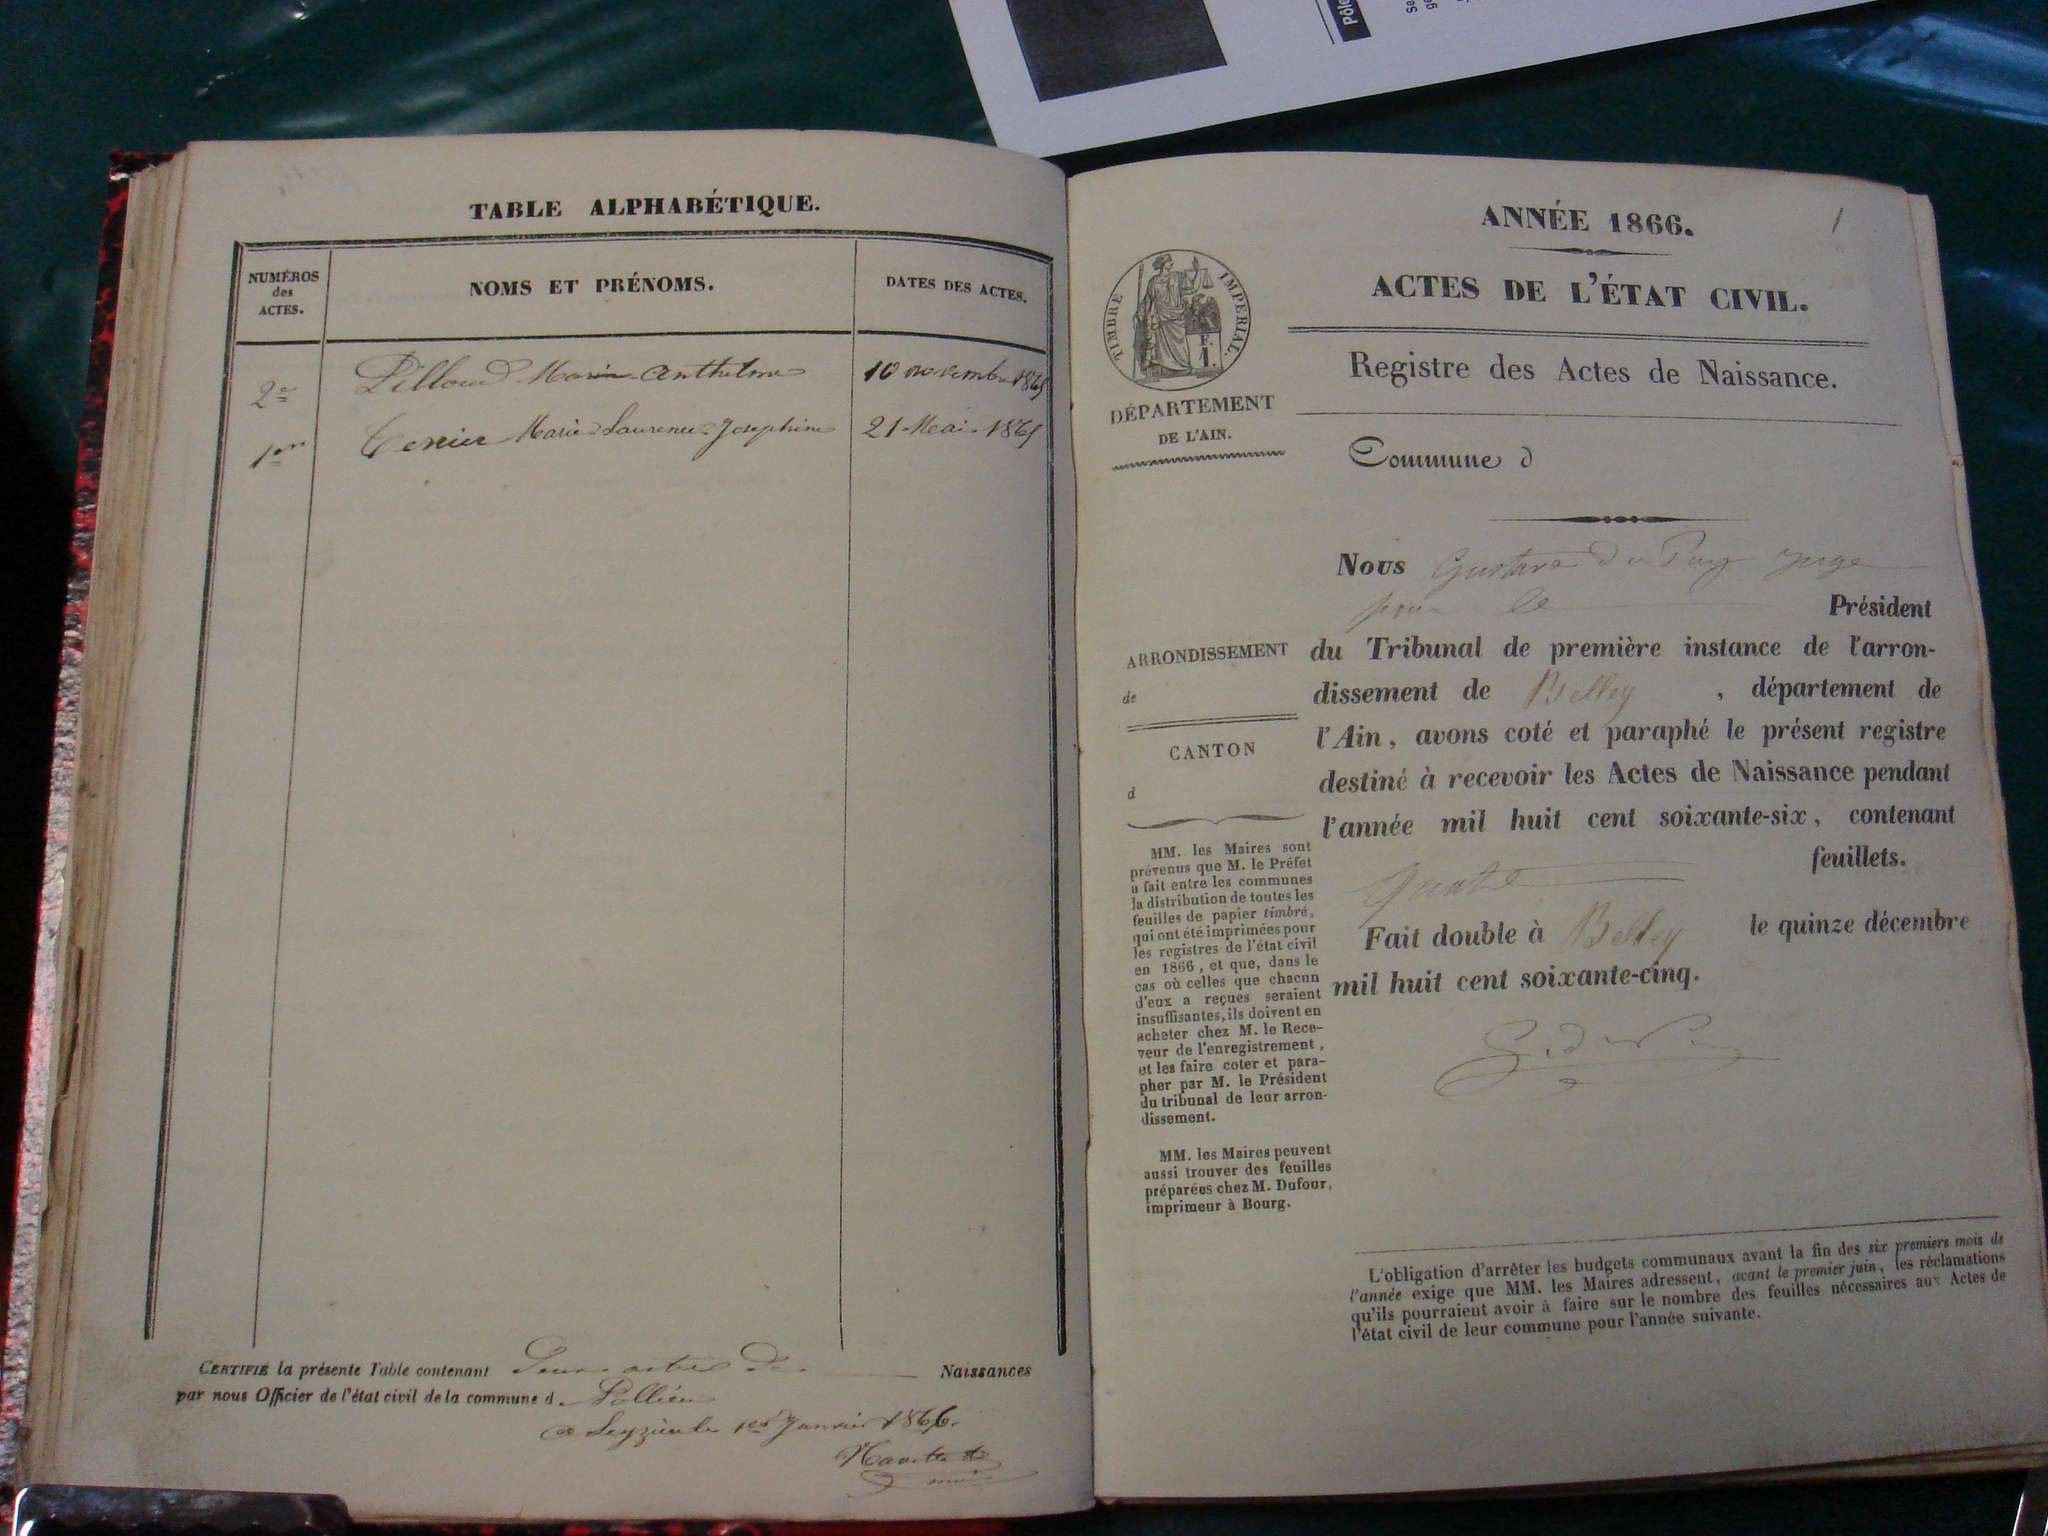 TABLE ALPHABÉTIQUE.
NUMÉROS
des
ACTES.
NOMS ET PRÉNOMS.
DATES DES ACTES.
2e Pilloud Marie Anthelme 10 novembre 1865
1er Tenier Marie Laurence Josephine 21 Mai 1865
CERTIFIÉ la présente Table contenant Deux actes de Naissances
par nous Officier de l'état civil de la commune d. Pollieu
a Leyzieu le 1er Janvier 1866.
ANNÉE 1866.
1
ACTES DE L'ÉTAT CIVIL.
Registre des Actes de Naissance.
TIMBRE IMPÉRIAL.
F.
1.
DÉPARTEMENT
DE L'AIN.
Commune d
Nous Gustave du Puy juge
pour le Président
du Tribunal de première instance de l'arron-
dissement de Belley , département de
l'Ain, avons coté et paraphé le présent registre
destiné à recevoir les Actes de Naissance pendant
l'année mil huit cent soixante-six, contenant
quatre feuillets.
Fait double à Belley le quinze décembre
mil huit cent soixante-cinq.
ARRONDISSEMENT
de
CANTON
d
MM. les Maires sont
prévenus que M. le Préfet
a fait entre les communes
la distribution de toutes les
feuilles de papier timbré,
qui ont été imprimées pour
les registres de l'état civil
en 1866, et que, dans le
cas où celles que chacun
d'eux a reçues seraient
insuffisantes, ils doivent en
acheter chez M. le Rece-
veur de l'enregistrement,
et les faire coter et para-
pher par M. le Président
du tribunal de leur arron-
dissement.
MM. les Maires peuvent
aussi trouver des feuilles
préparées chez M. Dufour,
imprimeur à Bourg.
L'obligation d'arrêter les budgets communaux avant la fin des six premiers mois de
l'année exige que MM. les Maires adressent, avant le premier juin, les réclamations
qu'ils pourraient avoir à faire sur le nombre des feuilles nécessaires aux Actes de
l'état civil de leur commune pour l'année suivante.
Pôle